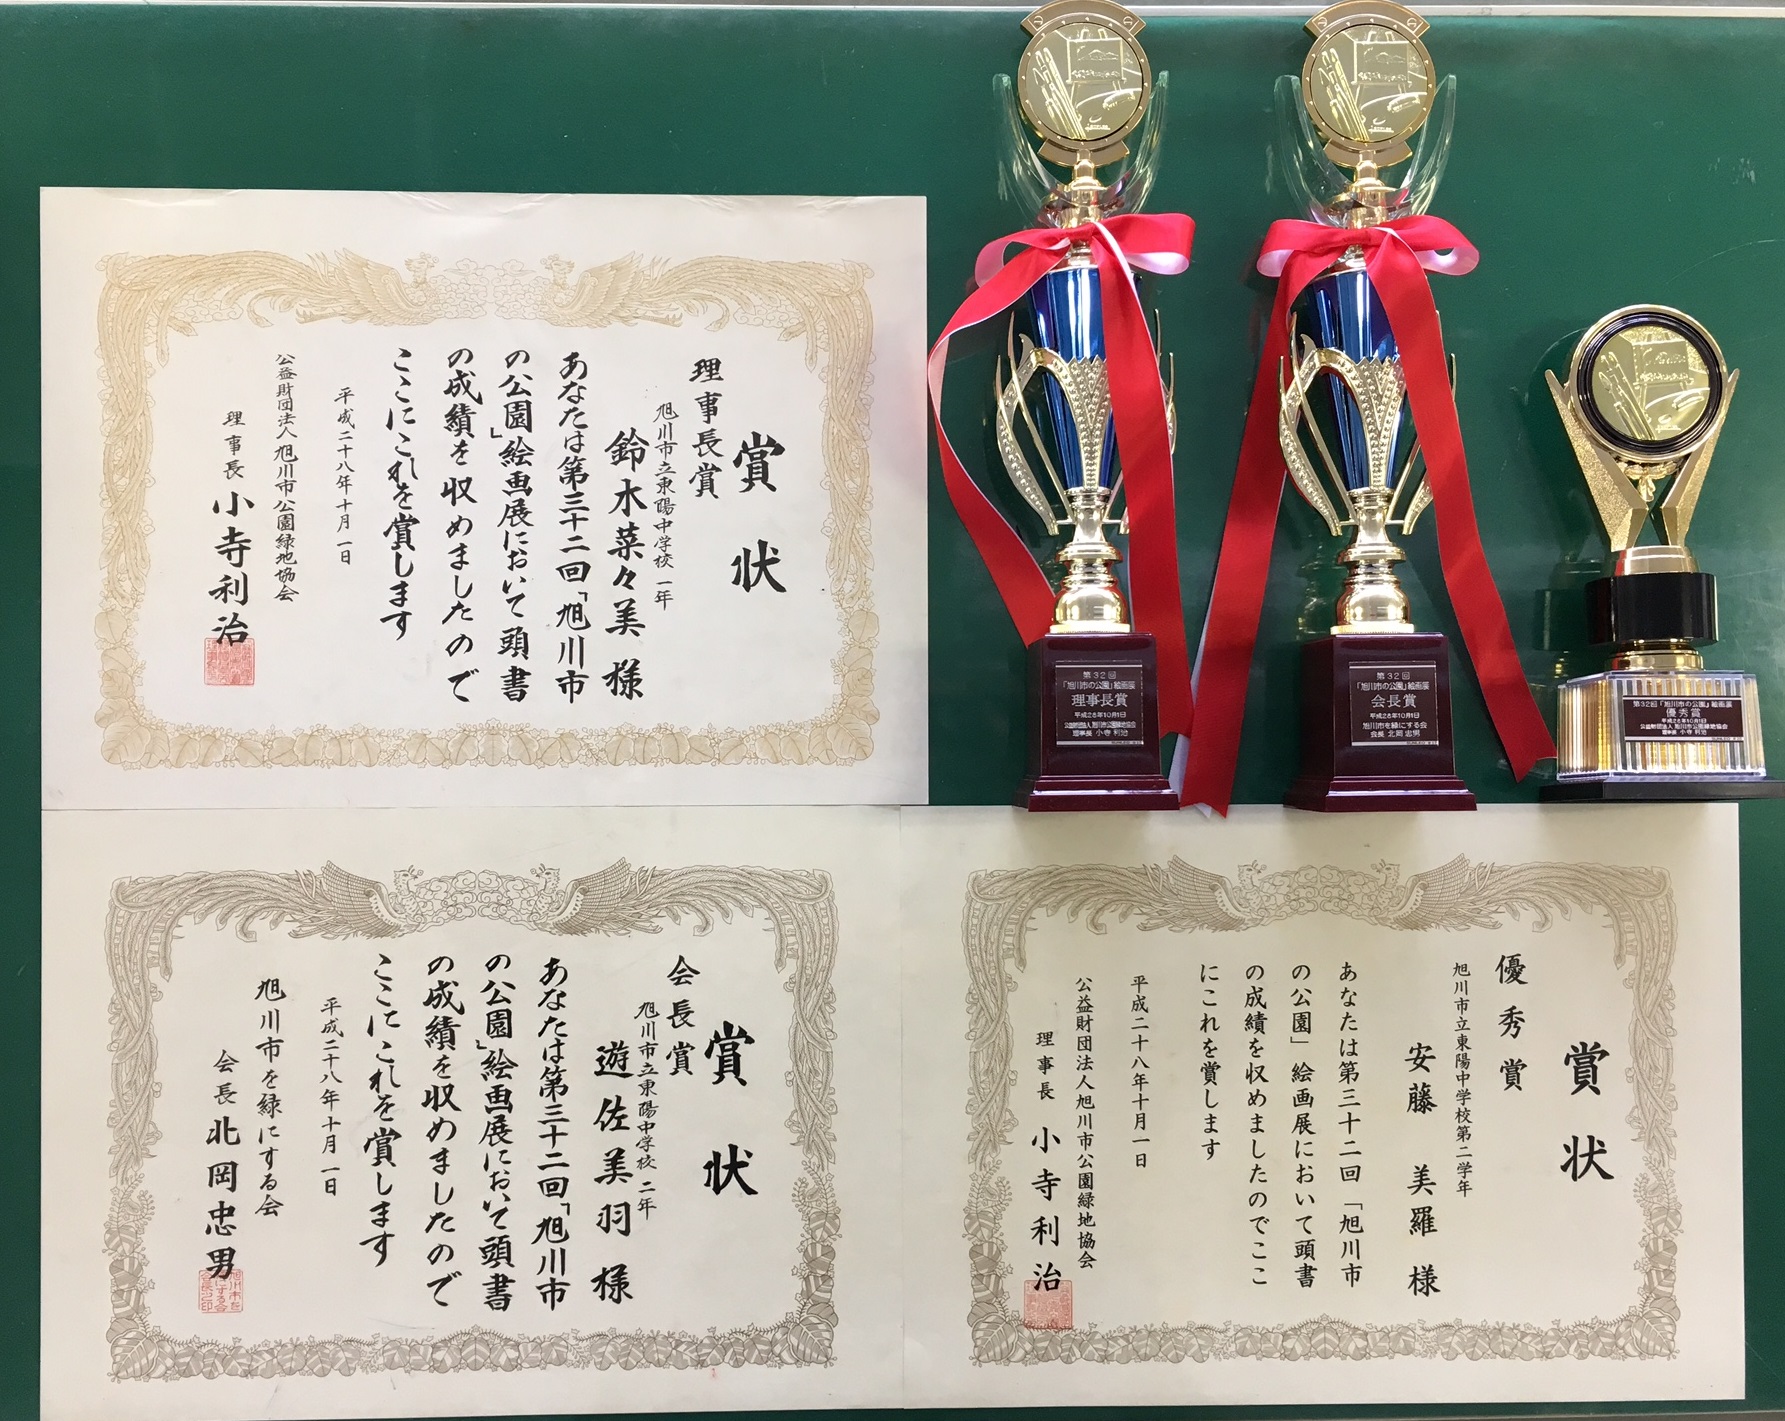 賞状
理事長賞
旭川市立東陽中学校 一年
鈴木菜々美 様
あなたは第三十二回「旭川市
の公園」絵画展において頭書
の成績を収めましたので
ここにこれを賞します
平成二十八年十月一日
公益財団法人旭川市公園緑地協会
理事長 小寺利治
第32回
「旭川市の公園」絵画展
理事長賞
平成28年10月1日
公益財団法人旭川市公園緑地協会
理事長 小寺 利治
第32回
「旭川市の公園」絵画展
会長賞
平成28年10月1日
旭川市を緑にする会
会長 北岡 忠男
第32回「旭川市の公園」絵画展
優秀賞
平成28年10月1日
公益財団法人 旭川市公園緑地協会
理事長 小寺 利治
賞状
会長賞
旭川市立東陽中学校 二年
遊佐美羽 様
あなたは第三十二回「旭川市
の公園」絵画展において頭書
の成績を収めましたので
ここにこれを賞します
平成二十八年十月一日
旭川市を緑にする会
会長 北岡忠男
賞状
優秀賞
旭川市立東陽中学校第二学年
安藤 美羅 様
あなたは第三十二回「旭川市
の公園」絵画展において頭書
の成績を収めましたのでここ
にこれを賞します
平成二十八年十月一日
公益財団法人旭川市公園緑地協会
理事長 小寺利治